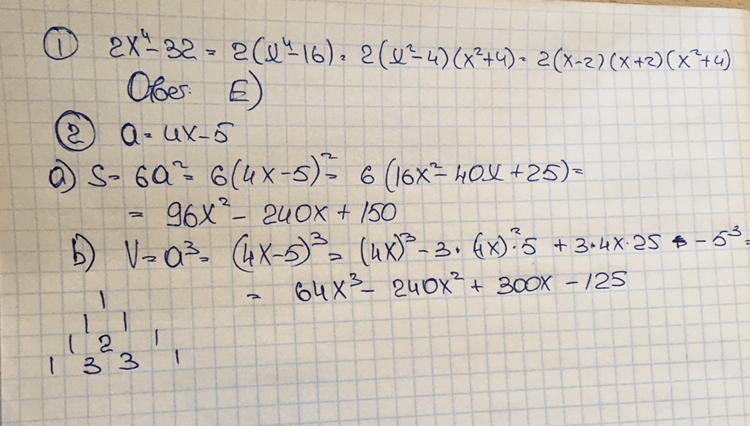 ① 2x⁴-32 = 2(x⁴-16) = 2(x²-4)(x²+4) = 2(x-2)(x+2)(x²+4)
Ответ: E)
② a = 4x-5
a) S = 6a² = 6(4x-5)² = 6(16x²-40x+25) =
= 96x² - 240x + 150
b) V = a³ = (4x-5)³ = (4x)³ - 3·(4x)²·5 + 3·4x·25 - 5³ =
= 64x³ - 240x² + 300x - 125
1
1 1
1 2 1
1 3 3 1